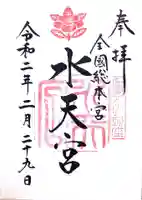 奉拝
全国総本宮
水天宮
令和二年二月二十九日